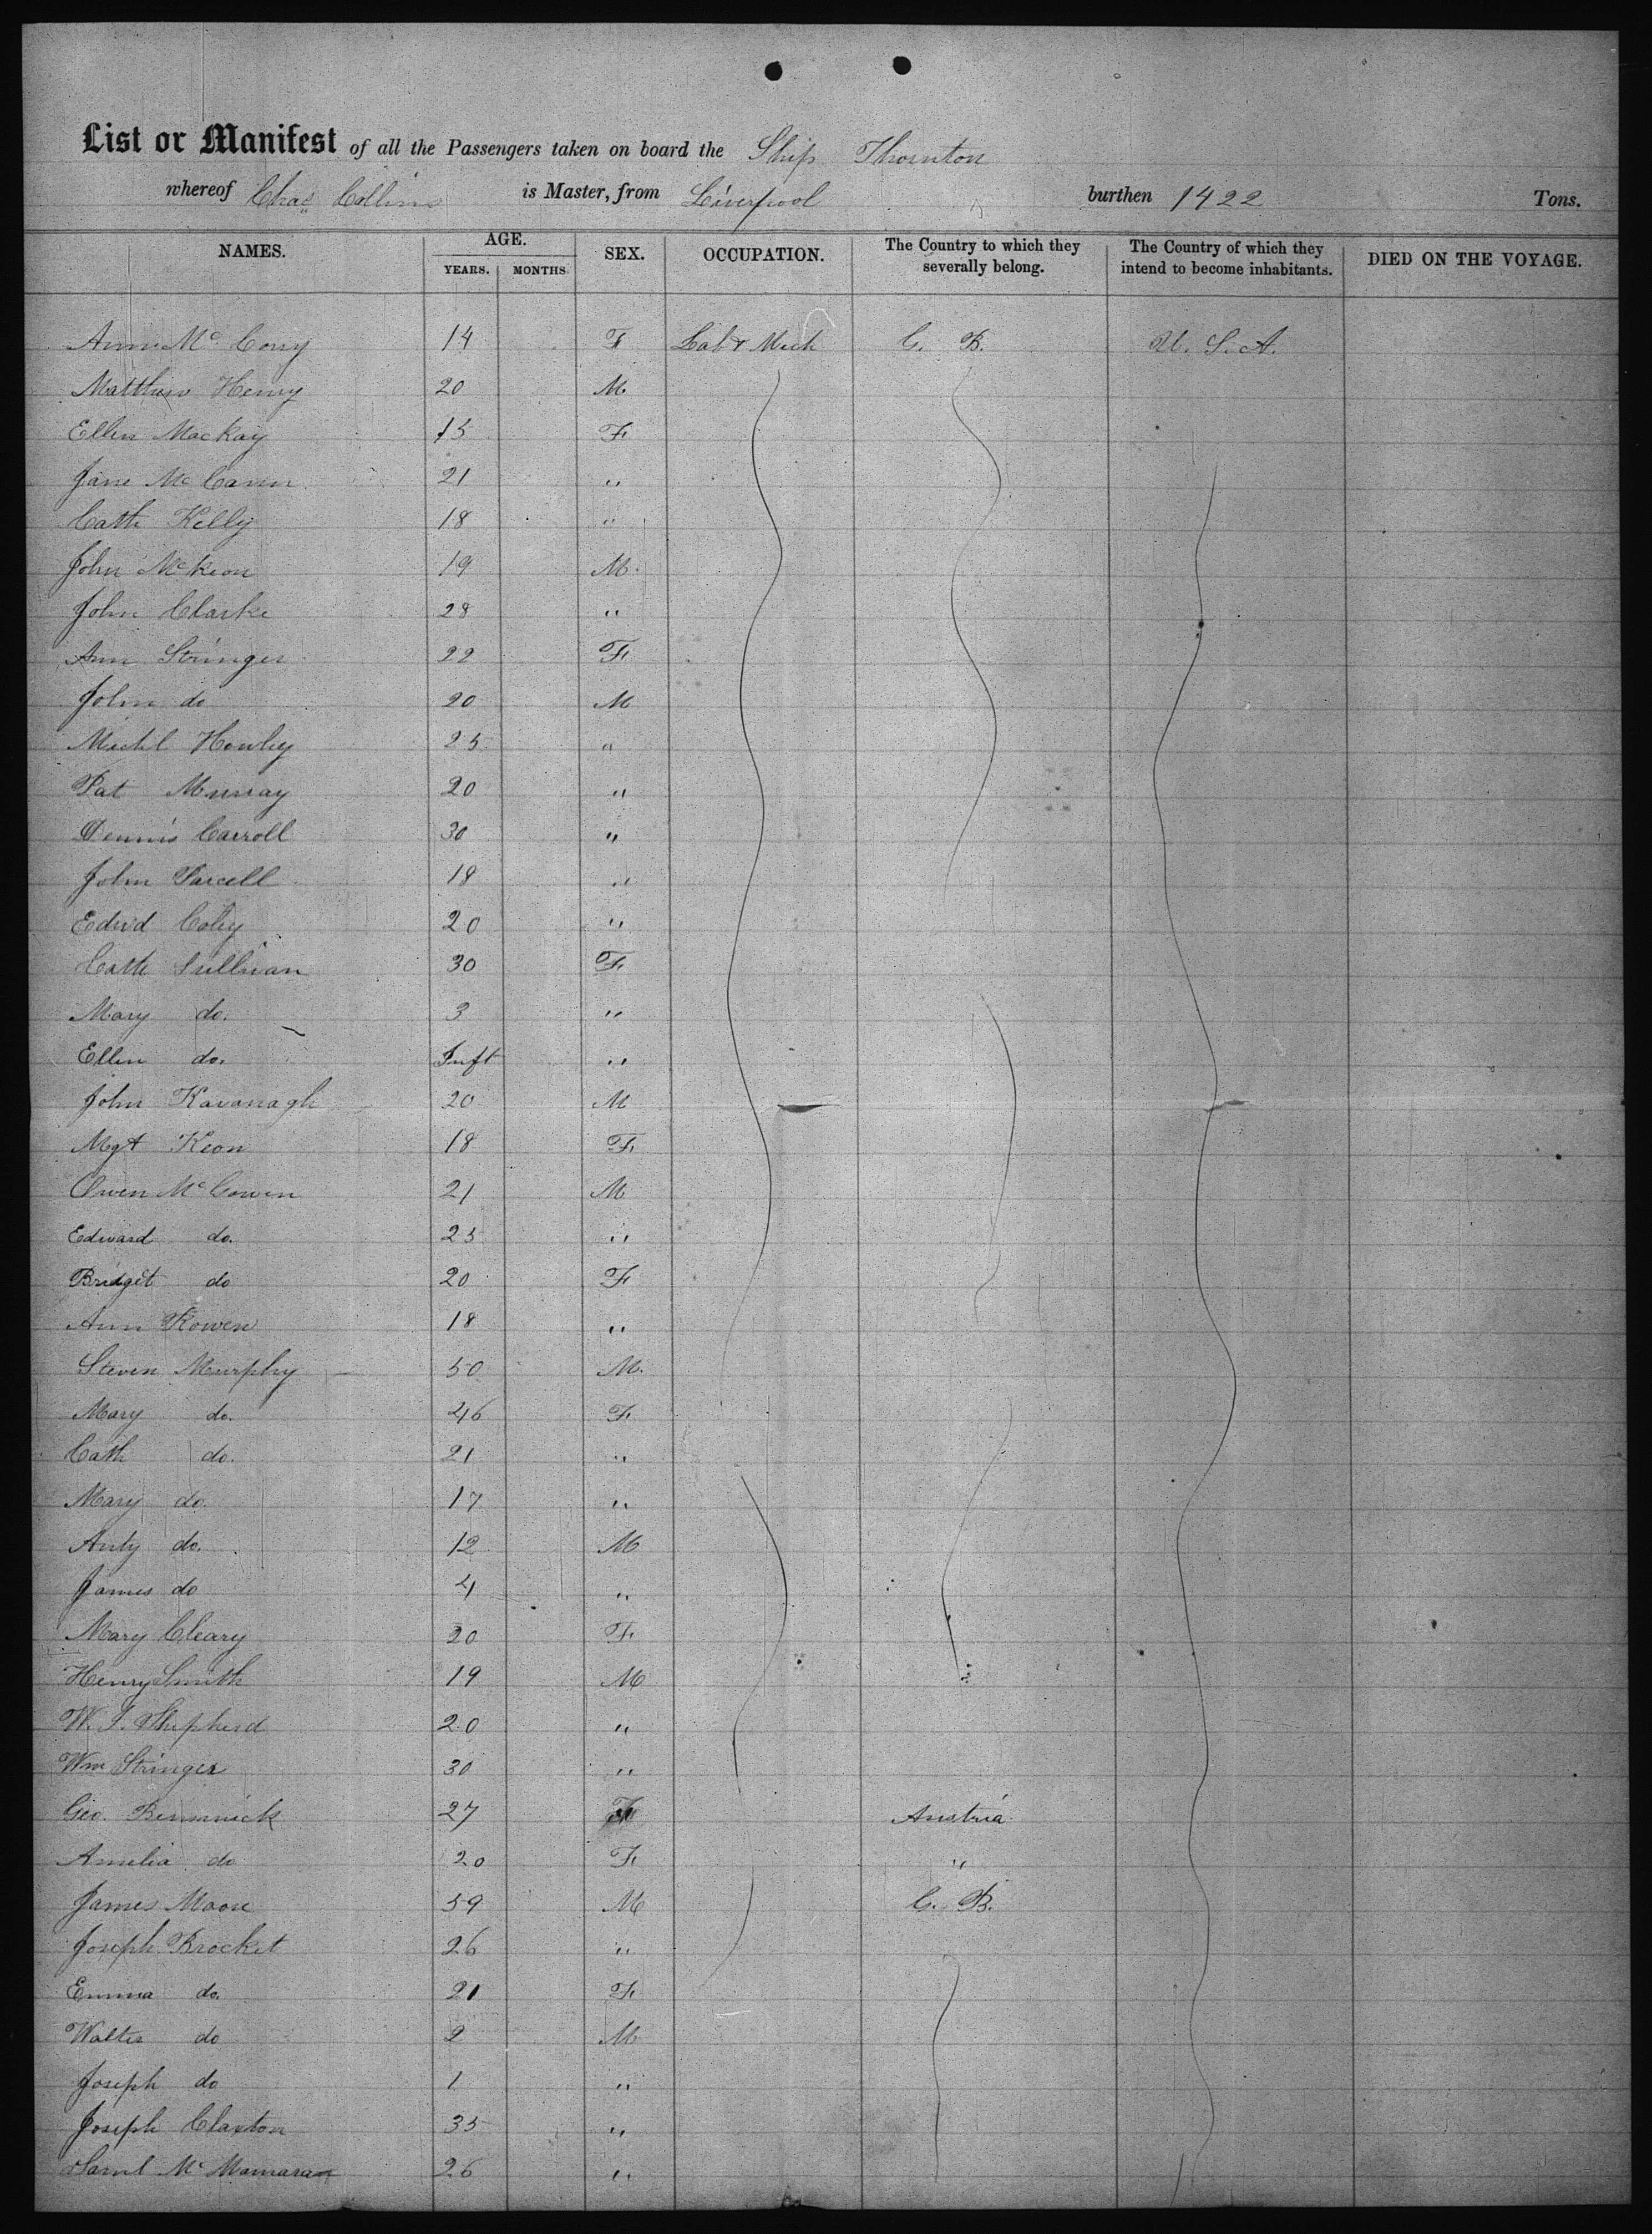 List or Manifest of all the Passengers taken on board the Ship Thornton
whereof Chas Collins is Master, from Liverpool burthen 1422 Tons.
NAMES. AGE. YEARS. MONTHS. SEX. OCCUPATION. The Country to which they severally belong. The Country of which they intend to become inhabitants. DIED ON THE VOYAGE.
Ann Mc Corry 14 F Lab & Mech G. B. U. S. A.
Matthew Henry 20 M
Ellen Mackay 15 F
Jane Mc Cann 21 "
Cath Kelly 18 "
John McKeon 19 M.
John Clarke 28 "
Ann Stringer 22 F
John do 20 M
Michl Howley 25 "
Pat Murray 20 "
Dennis Carroll 30 "
John Parcell 18 "
Edwd Coley 20 "
Cath Sullivan 30 F
Mary do. 3 "
Ellen do. Inft "
John Kavanagh 20 M
Mgt Keon 18 F
Owen Mc Gowen 21 M
Edward do. 25 "
Bridget do 20 F
Ann Rowen 18 "
Steven Murphy 50 M.
Mary do. 46 F
Cath do. 21 "
Mary do. 17 "
Anty do. 12 M
James do 4 "
Mary Cleary 20 F
Henry Smith 19 M
W. J. Shepherd 20 "
Wm Stringer 30 "
Geo. 27 Austria
Amelia do 20 F "
James Moore 59 M G. B.
Joseph Brocket 26 "
Emma do. 21 F
Walter do 2 M
Joseph do 1 "
Joseph Claxton 35 "
Saml Mc Mamaran 26 "